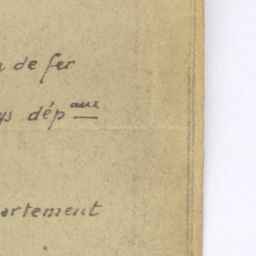 de fer
dép^aux
artement